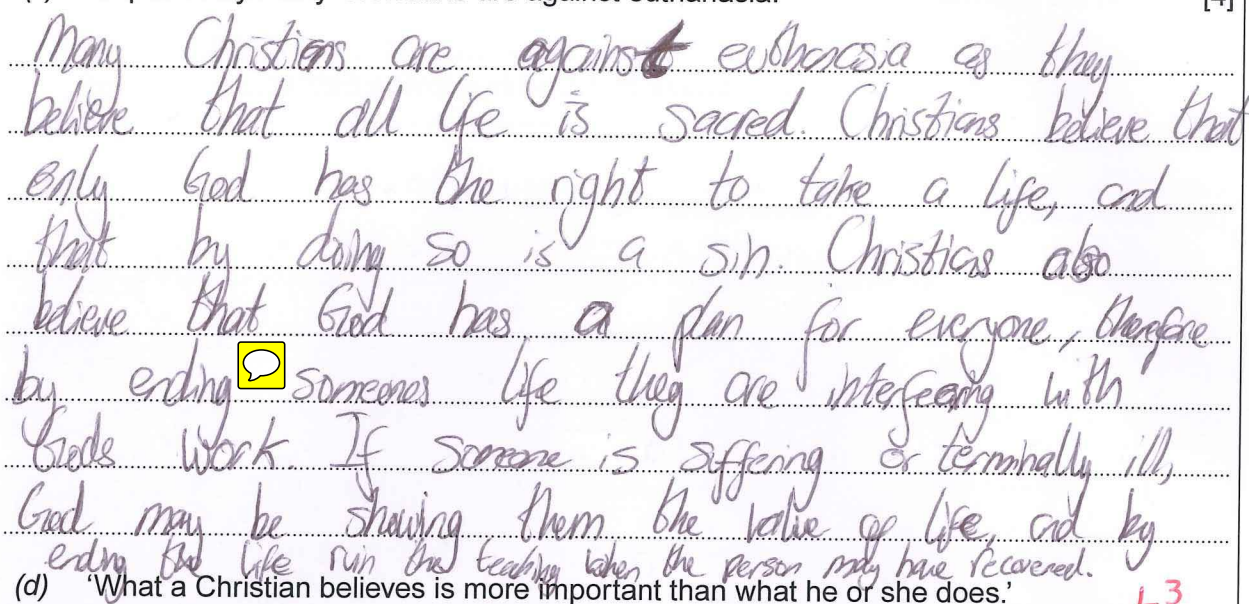 are against euthanasia. [4]
Many Christians are against euthanasia as they
believe that all life is sacred. Christians believe that
only God has the right to take a life, and
that by doing so is a sin. Christians also
believe that God has a plan for everyone, therefore
by ending someones life they are interfeering with
Gods work. If someone is suffering or terminally ill,
God may be showing them the value of life, and by
ending the life ruin the teaching when the person may have recovered.
(d) 'What a Christian believes is more important than what he or she does.'
L3